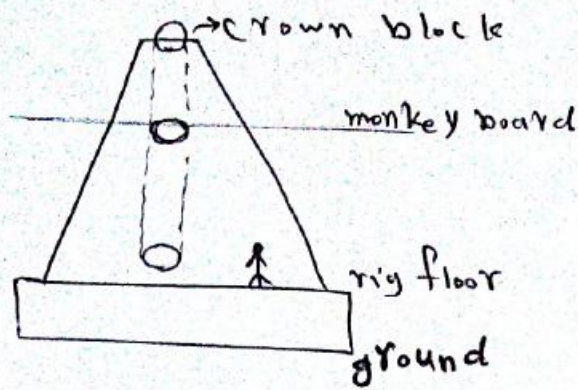 crown block
monkey board
rig floor
ground